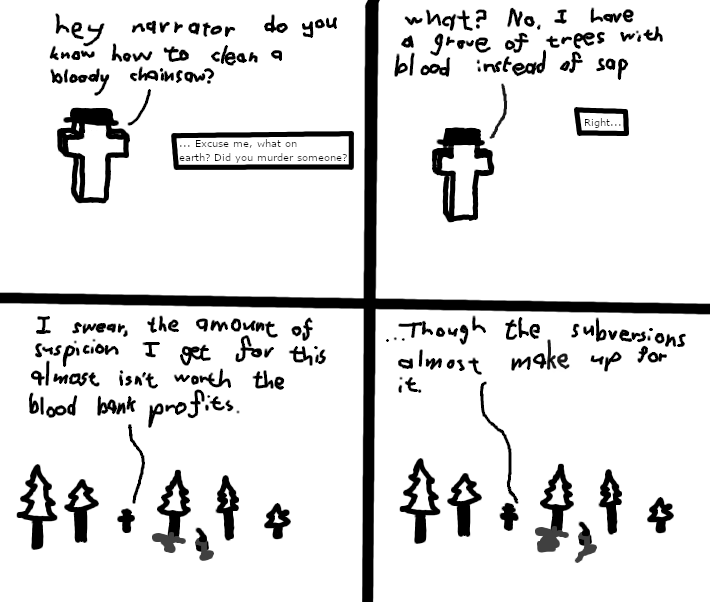 hey narrator do you
know how to clean a
bloody chainsaw?
... Excuse me, what on
earth? Did you murder someone?
what? No, I have
a grove of trees with
blood instead of sap
Right...
I swear, the amount of
suspicion I get for this
almost isn't worth the
blood bank profits.
...Though the subversions
almost make up for
it.